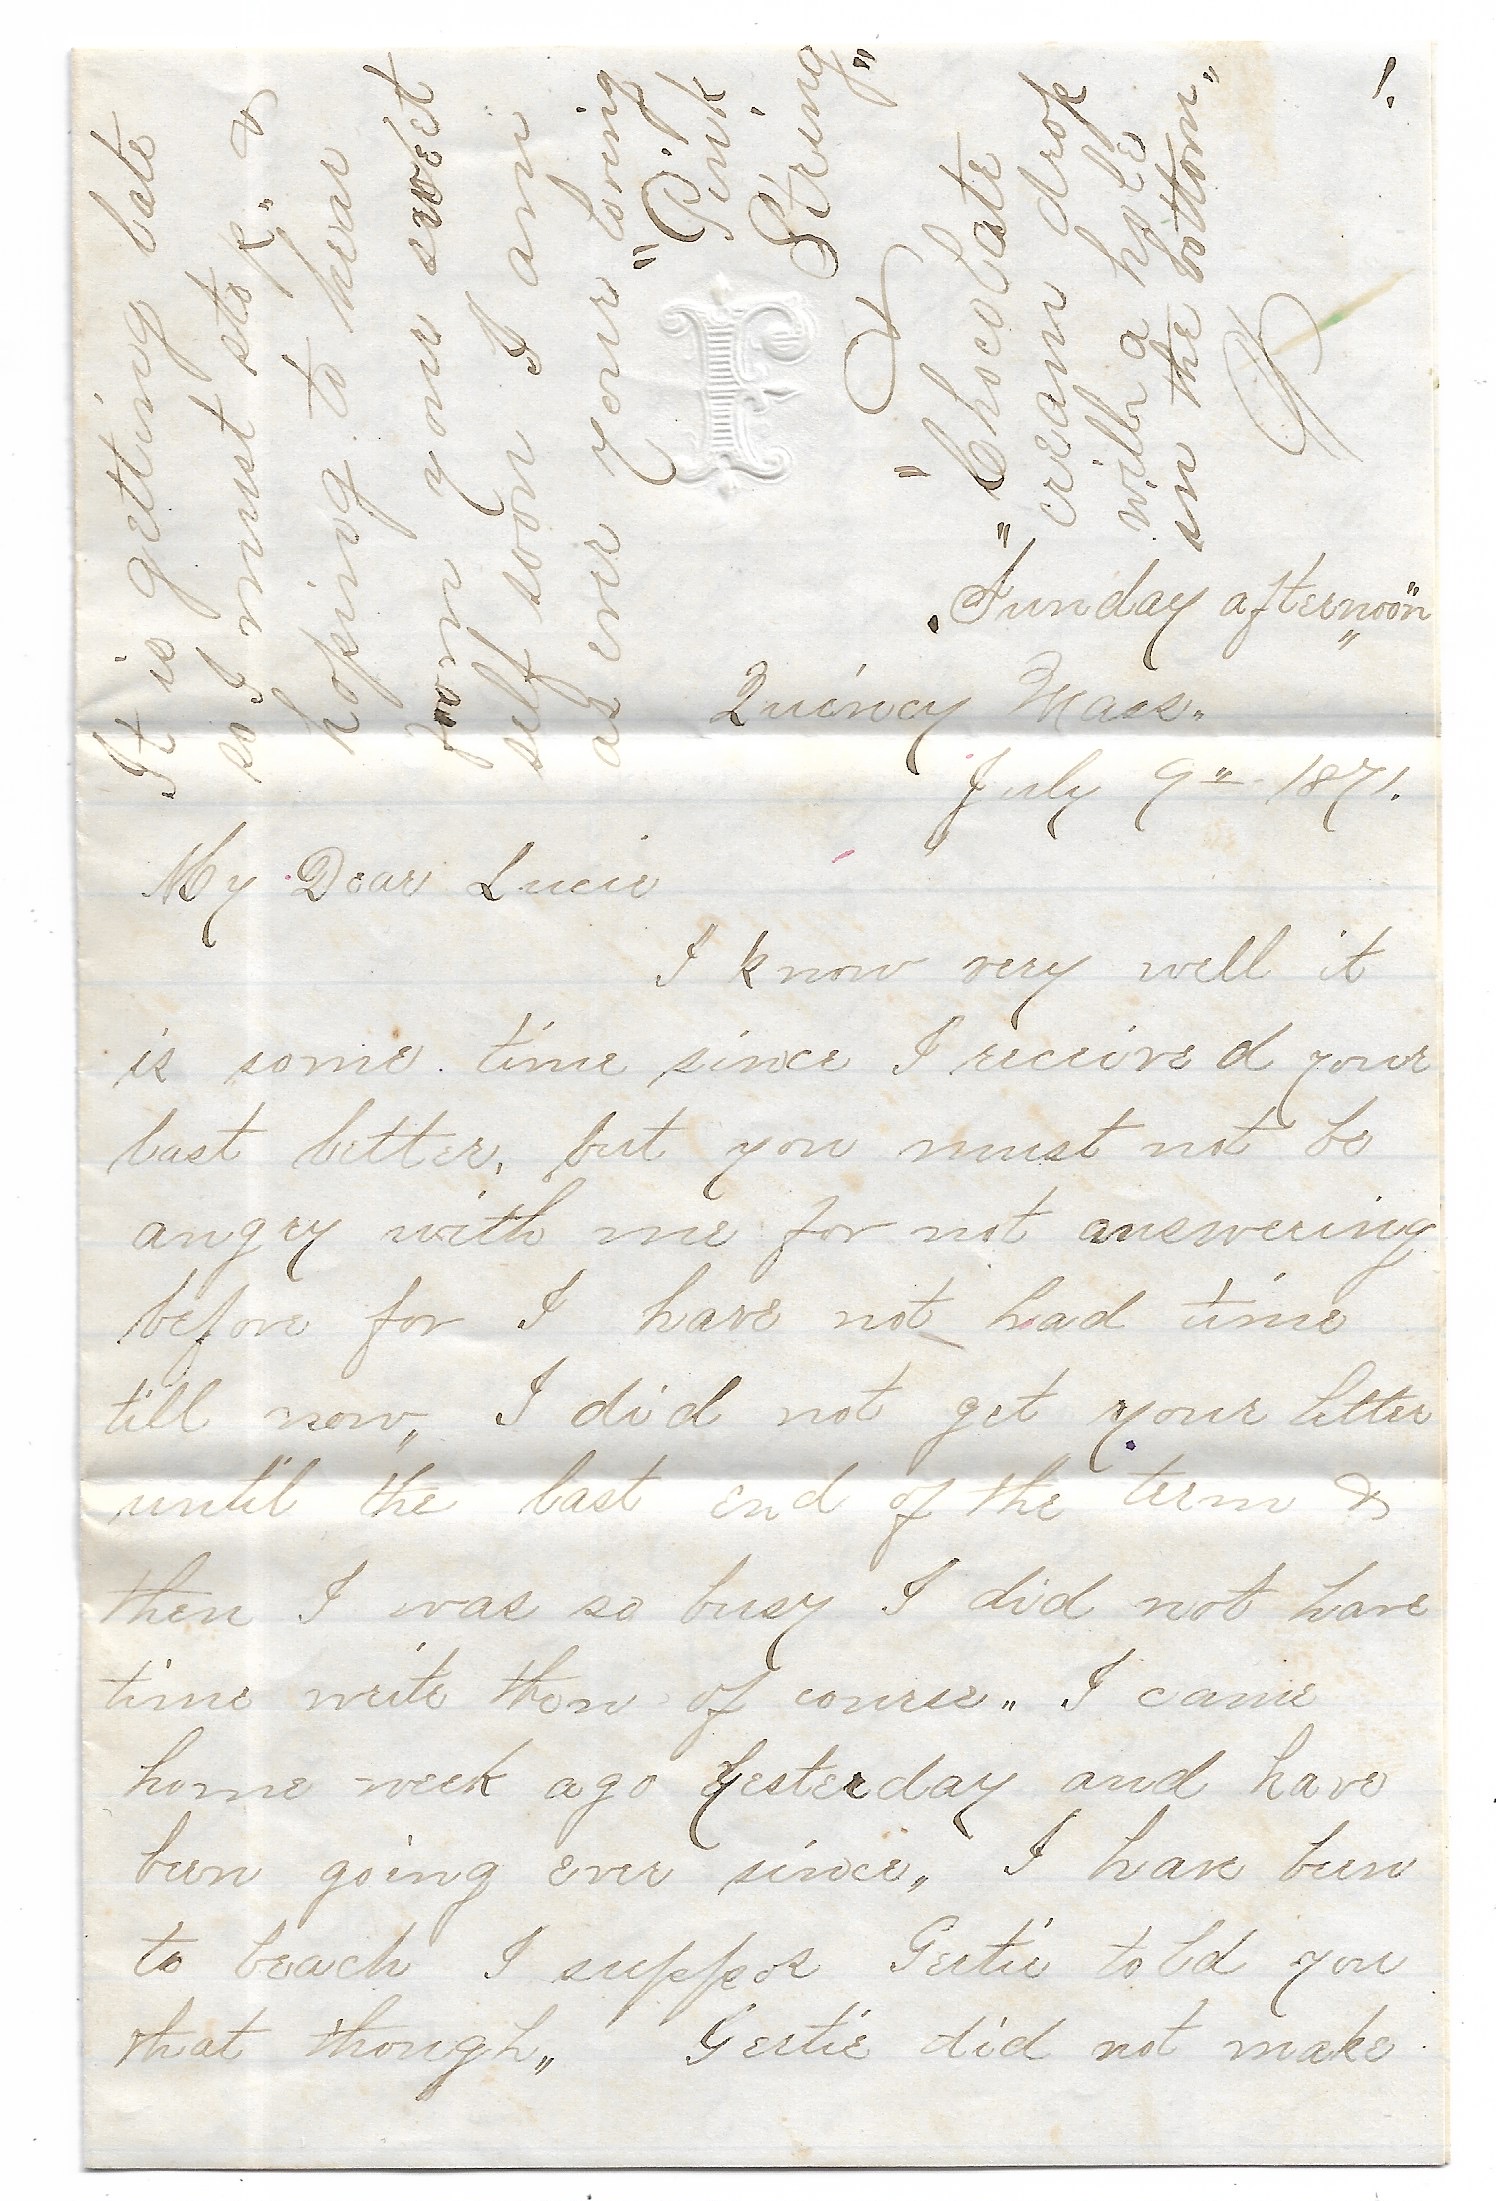 It is getting late
so I must stop. &
hoping to hear
from your sweet
self soon I am
as ever your loving
"Pink
String"
&
"Chocolate
cream drop
with a hole
in the bottom"
F
!
Sunday afternoon
Quincy Mass.
July 9" 1871.
My Dear Lucie
I know very well it
is some time since I received your
last letter, but you must not be
angry with me for not answering
before for I have not had time
till now, I did not get your letter
until the last end of the term &
then I was so busy I did not have
time write then of course. I came
home week ago Yesterday and have
been going ever since, I have been
to beach I suppos Gertie told you
that though, Gertie did not make